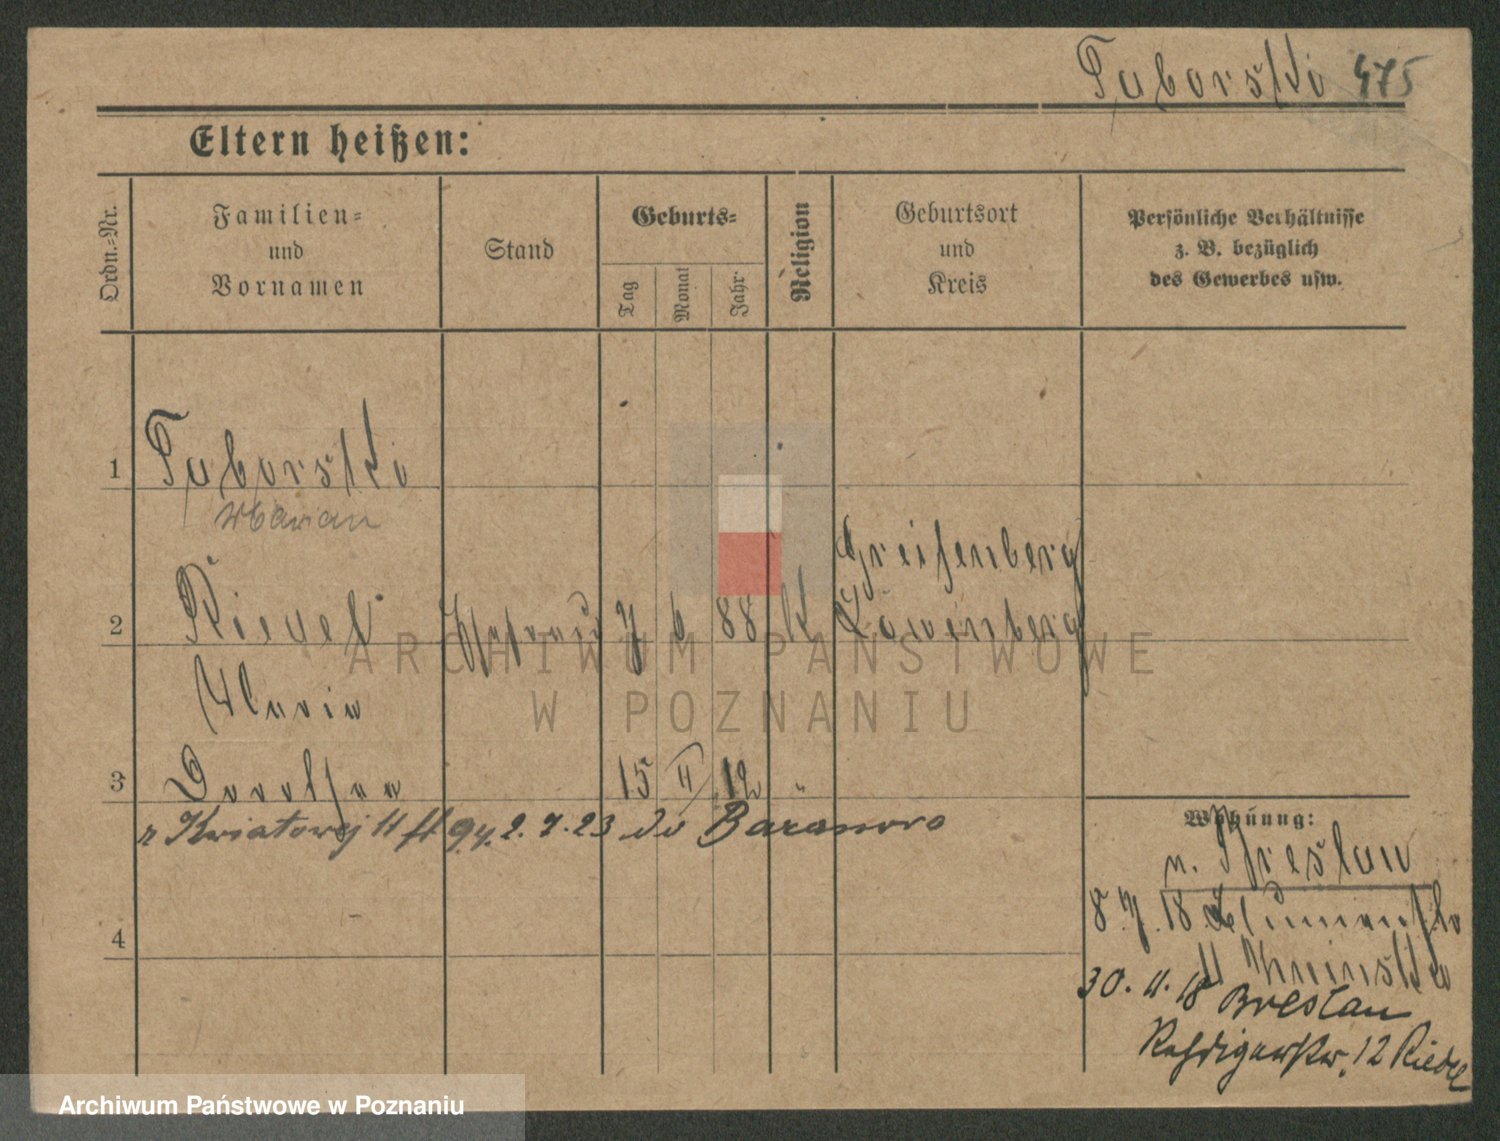 Taborski 475
Eltern heißen:
Ordn.=Nr.
Familien=
und
Vornamen
Stand
Geburts=
Tag
Monat
Jahr
Religion
Geburtsort
und
Kreis
Persönliche Verhältnisse
z. B. bezüglich
des Gewerbes usw.
1 Taborski
Marian
Greifenberg
2 7 6 88 K Löwenberg
Maria
3 Dorothea 15 II 12 "
z Kwiatowej 11 2.7.23 do Baranowo
Wohnung:
n. Breslau
8.7.18 Blumenstr
11 Kninski
4
30. 11. 18 Breslau
12
ARCHIWUM PAŃSTWOWE
W POZNANIU
Archiwum Państwowe w Poznaniu